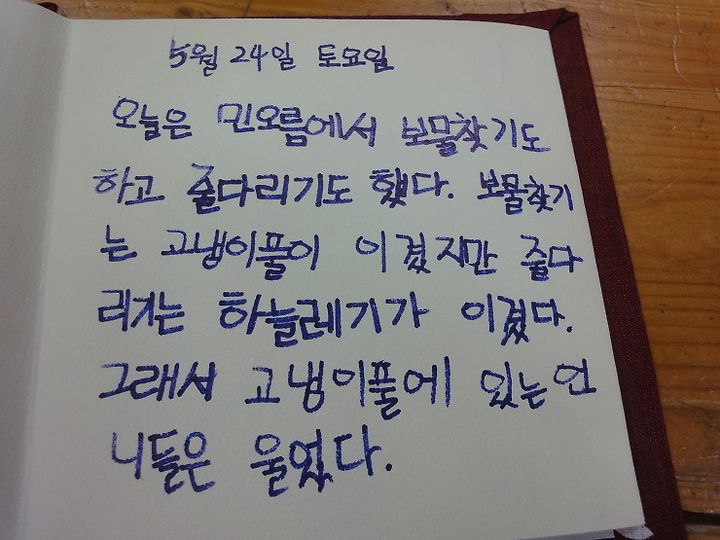 5월 24일 토요일
오늘은 민오름에서 보물찾기도
하고 줄다리기도 했다. 보물찾기
는 고냉이풀이 이겼지만 줄다
리기는 하늘레기가 이겼다.
그래서 고냉이풀에 있는 언
니들은 울었다.